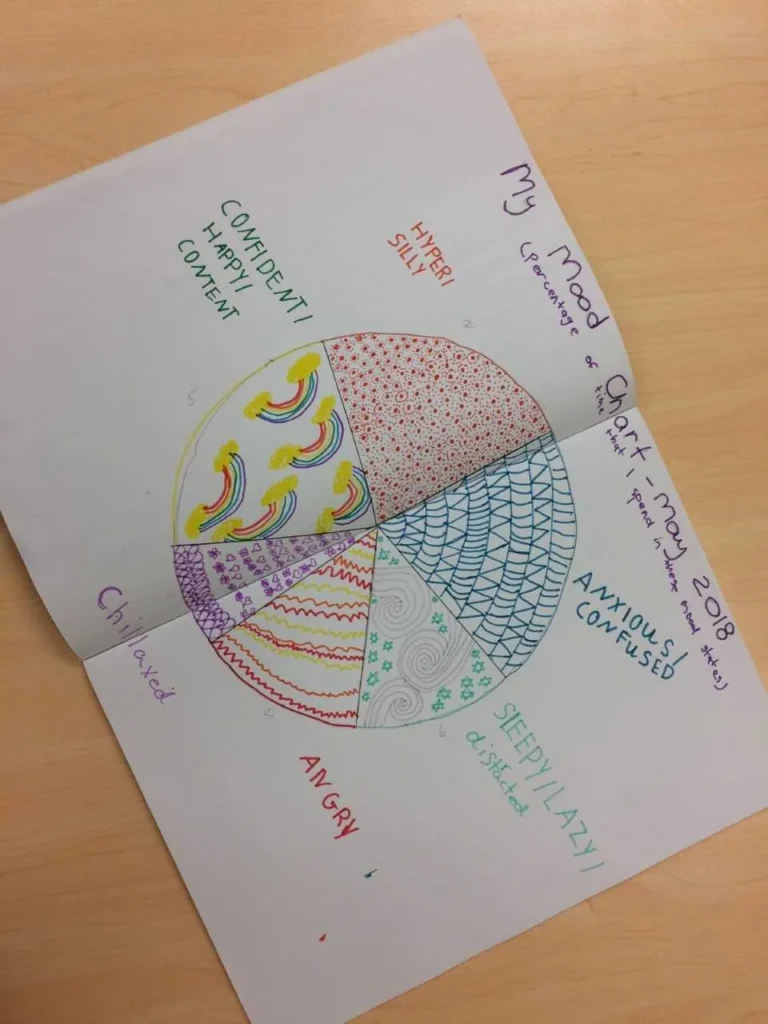 My Mood Chart - May 2018
(percentage of time that i spend in these mood states)
HYPER/
SILLY
CONFIDENT/
HAPPY/
CONTENT
ANXIOUS/
CONFUSED
SLEEPY/LAZY/
distacted
ANGRY
Chillaxed
2
5
6